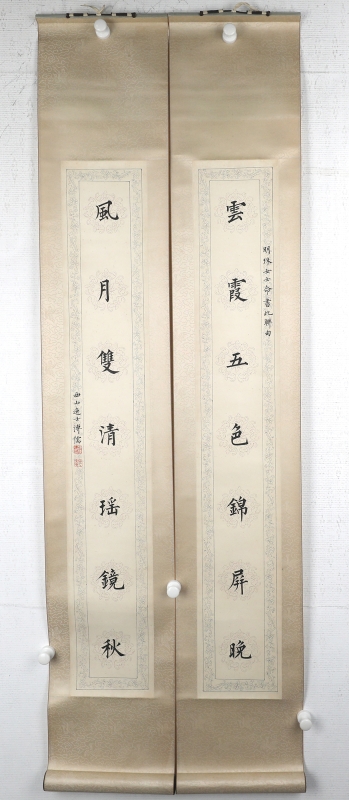 明珠女士命書此聯句
雲霞五色錦屏晚
風月雙清瑶鏡秋
西山逸士溥儒